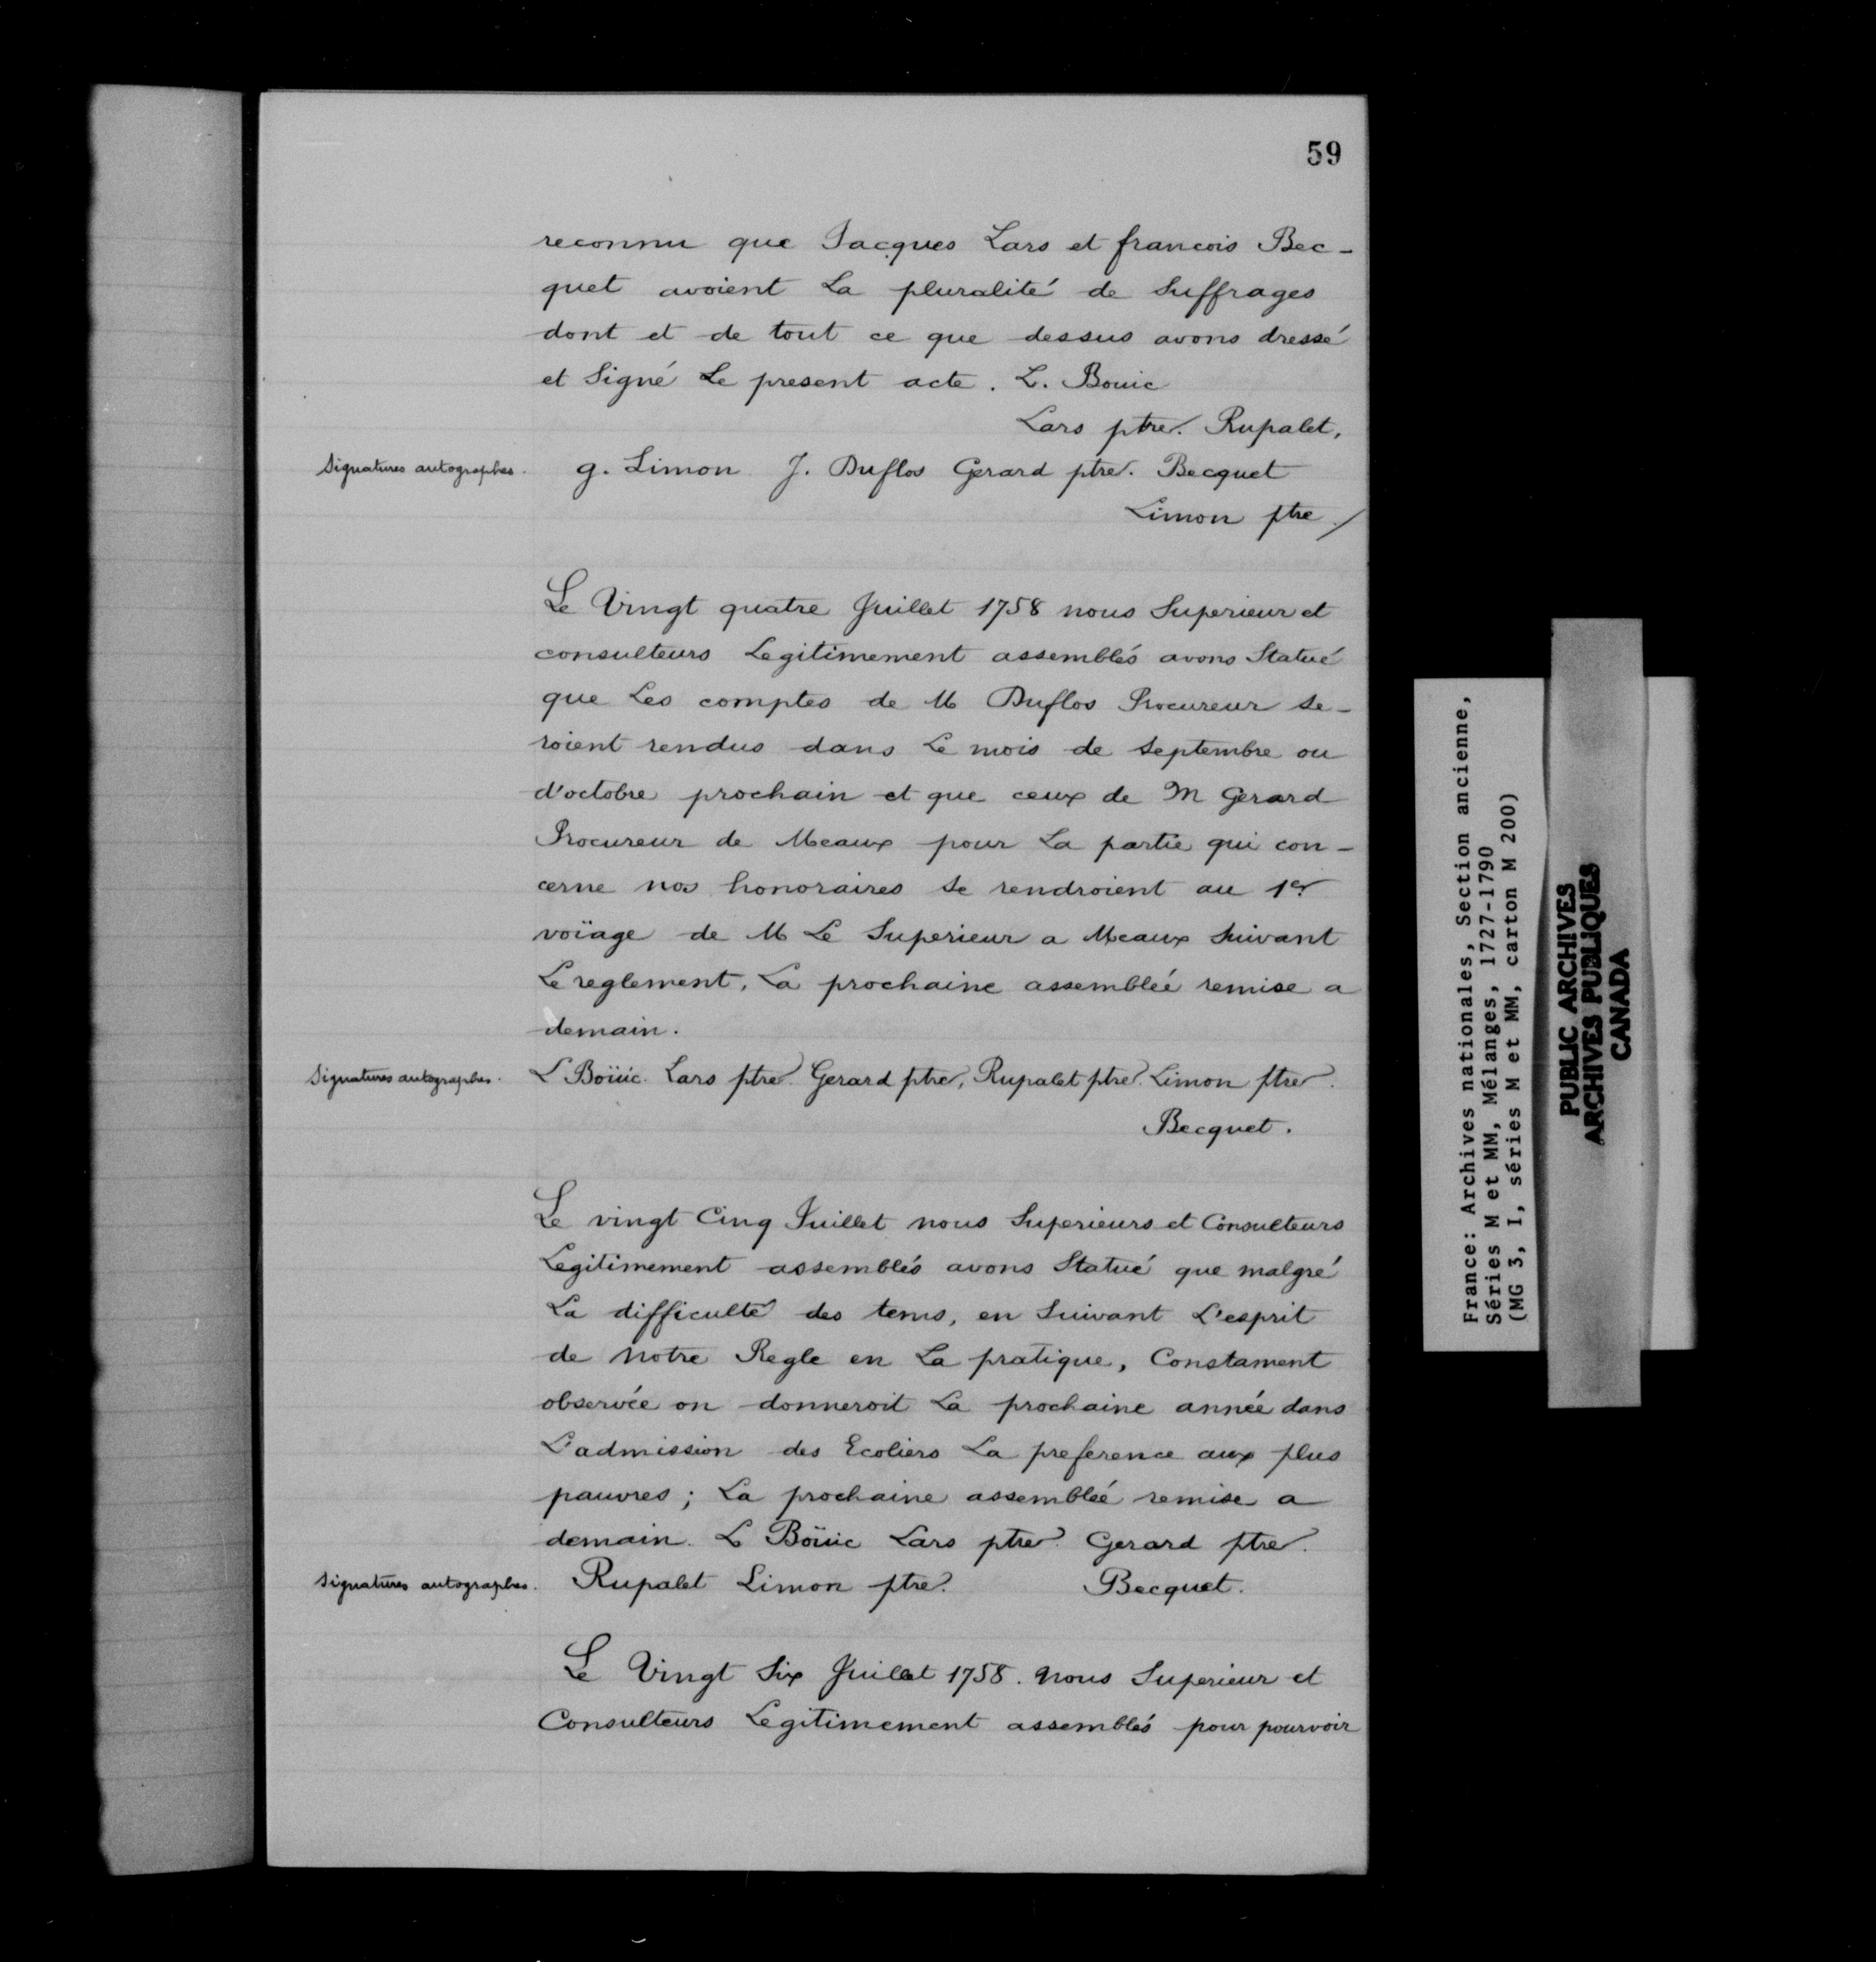 59
reconnu que Jacques Lars et francois Bec-
quet avoient La pluralité de Suffrages
dont et de tout ce que dessus avons dressé
et Signé Le present acte. L. Bouic
Lars ptre. Rupalet,
Signatures autographes.
g. Limon J. Duflos Gerard ptre. Becquet
Limon ptre./
Le Vingt quatre Juillet 1758 nous Superieur et
consulteurs Legitimement assemblés avons Statué
que Les comptes de M Duflos Procureur se-
roient rendus dans Le mois de Septembre ou
d'octobre prochain et que ceux de M Gerard
Procureur de Meaux pour La partie qui con-
cerne nos honoraires se rendroient au 1er
voïage de M Le Superieur a Meaux Suivant
Le reglement. La prochaine assembleé remise a
demain.
Signatures autographes.
L Boüic. Lars ptre. Gerard ptre, Rupalet ptre. Limon ptre.
Becquet.
Le vingt Cinq Juillet nous Superieurs et Consulteurs
Legitimement assemblés avons Statué que malgré
La difficulté des tems, en Suivant L'esprit
de Notre Regle en La pratique, Constament
observée on donneroit La prochaine année dans
L'admission des Ecoliers La preference aux plus
pauvres; La prochaine assembleé remise a
demain. L Boüic Lars ptre. Gerard ptre.
Signatures autographes.
Rupalet Limon ptre. Becquet.
Le Vingt Six Juillet 1758. Nous Superieur et
Consulteurs Legitimement assemblés pour pourvoir
France: Archives nationales, Section ancienne,
Séries M et MM, Mélanges, 1727-1790
(MG 3, I, séries M et MM, carton M 200)
PUBLIC ARCHIVES
ARCHIVES PUBLIQUES
CANADA